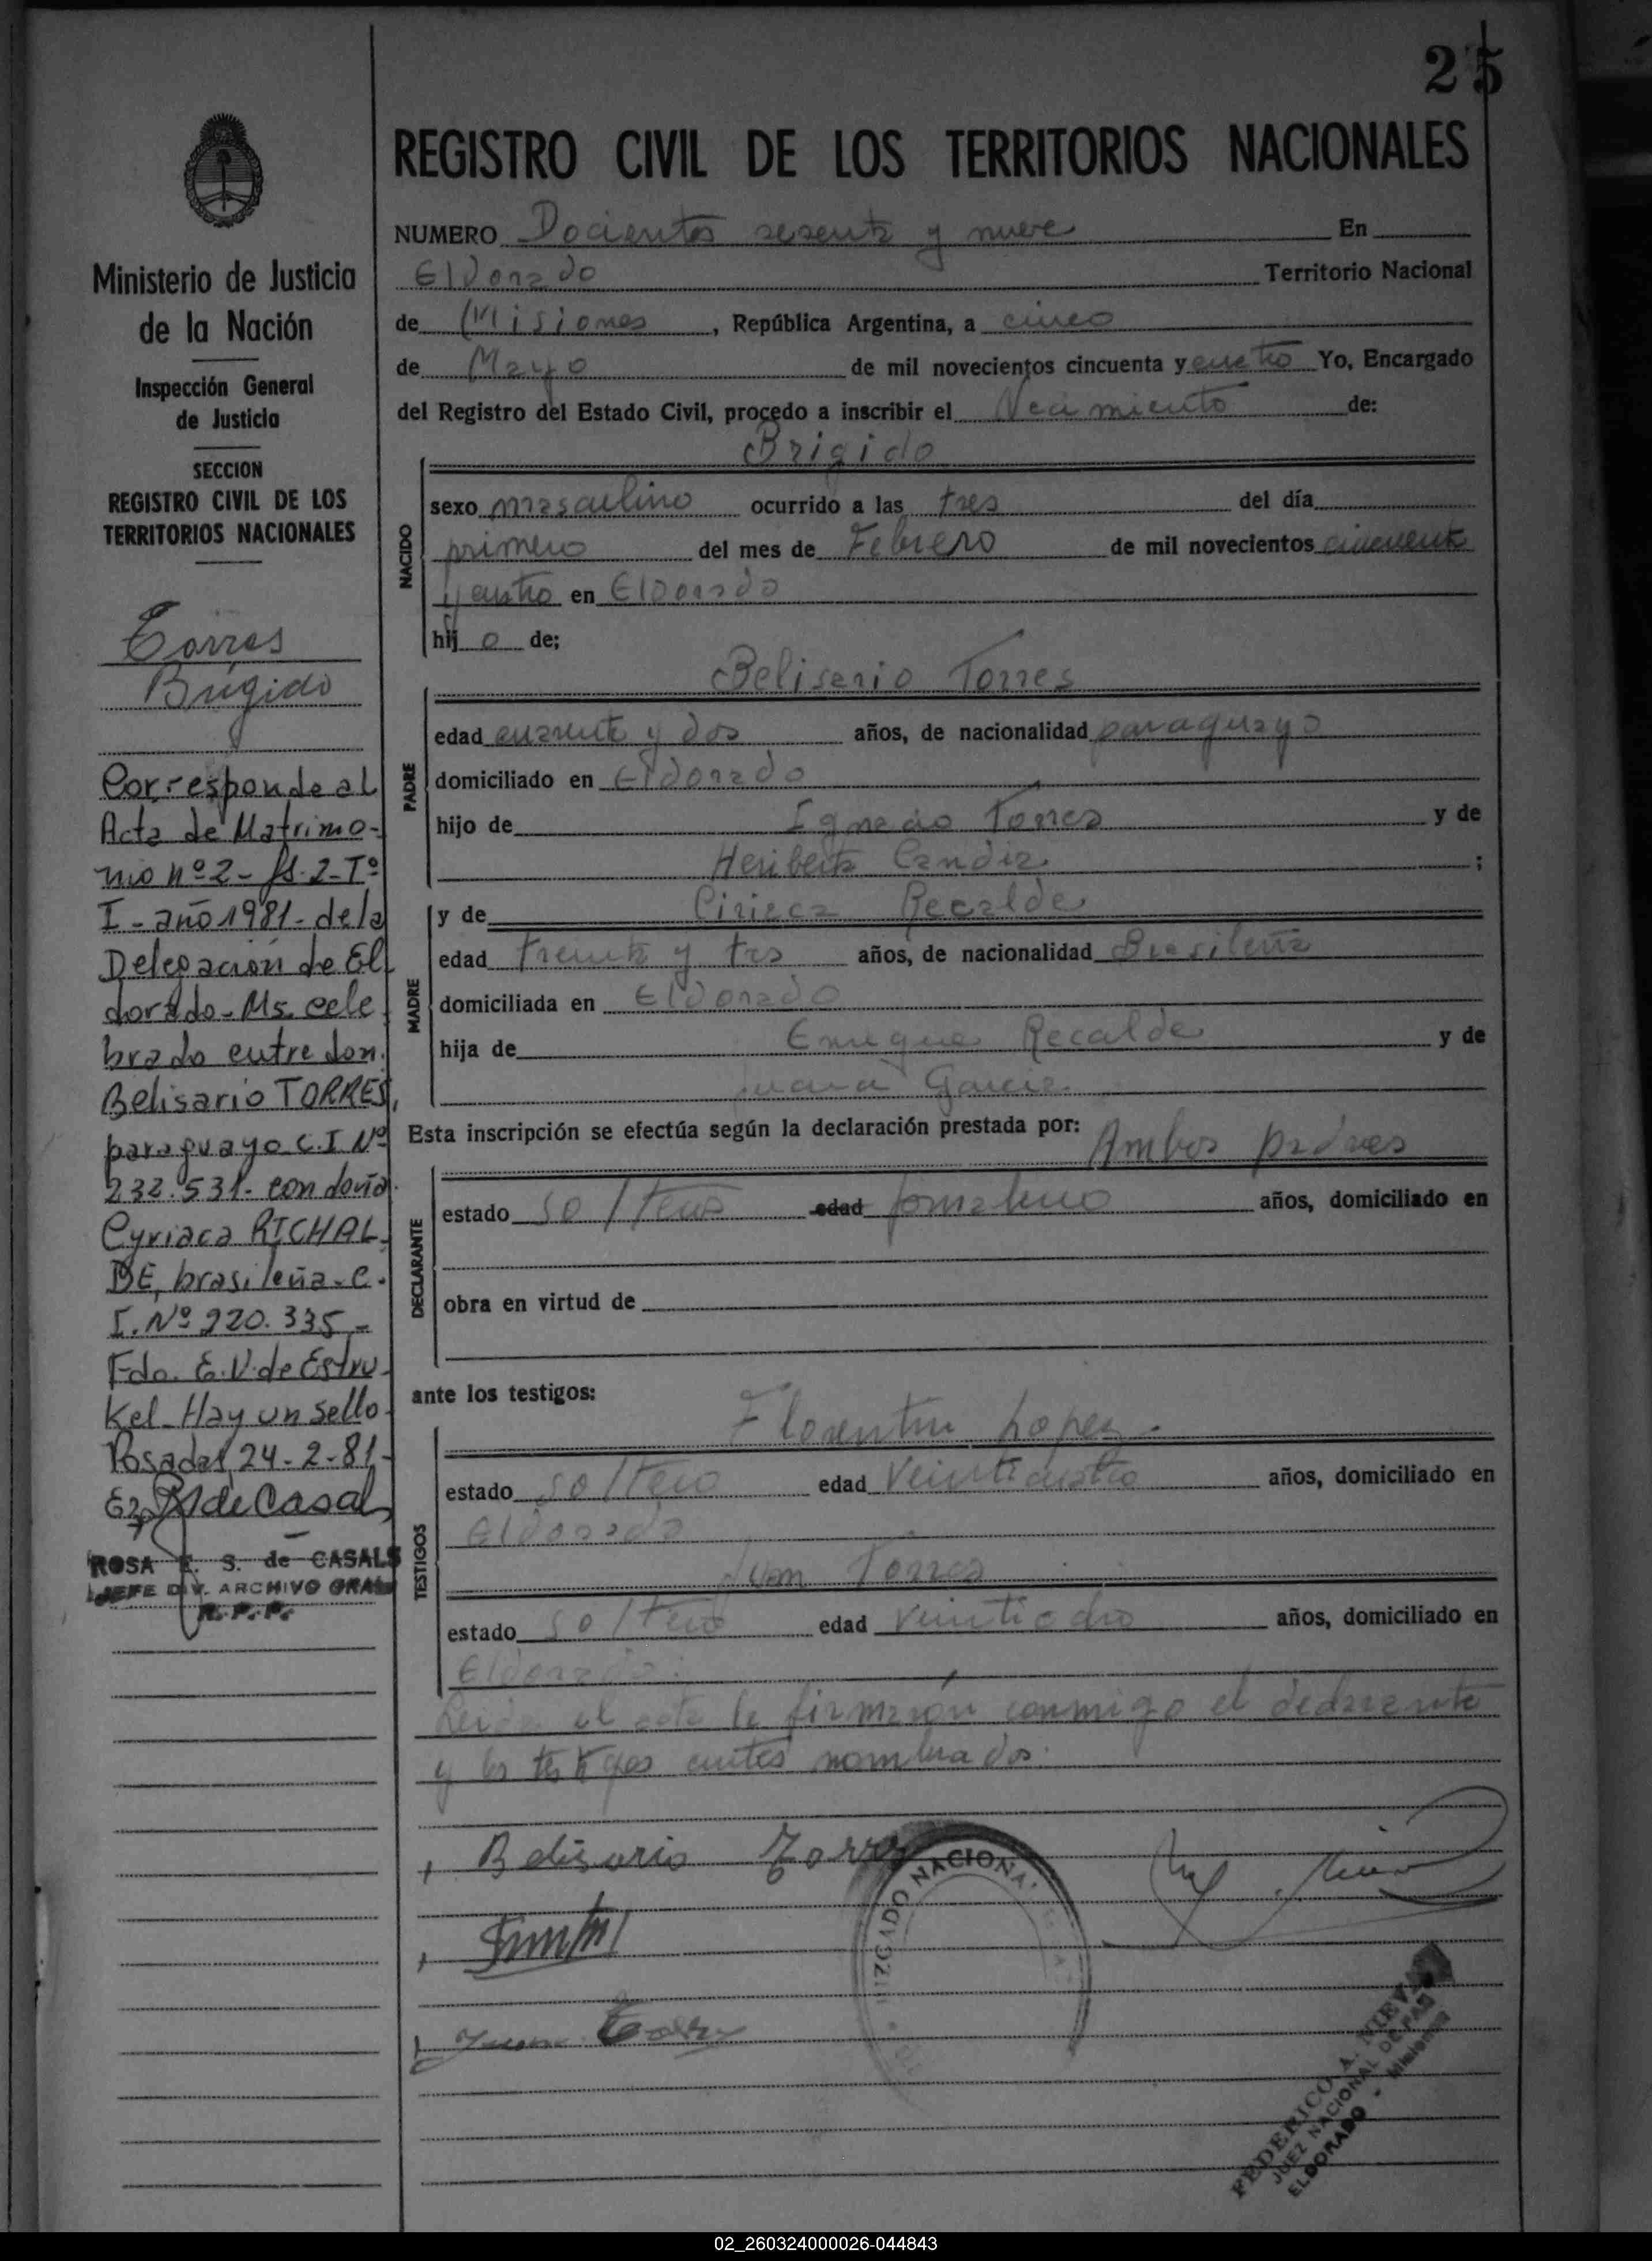 25
REGISTRO CIVIL DE LOS TERRITORIOS NACIONALES
NUMERO Docientos sesenta y nueve En
Eldorado Territorio Nacional
de Misiones, República Argentina, a cinco
de Mayo de mil novecientos cincuenta y cuatro Yo, Encargado
del Registro del Estado Civil, procedo a inscribir el Nacimiento de:
Brigido
NACIDO
sexo masculino ocurrido a las tres del día
primero del mes de Febrero de mil novecientos cincuenta
y cuatro en Eldorado
hijo de;
Belisario Torres
PADRE
edad cuarenta y dos años, de nacionalidad paraguayo
domiciliado en Eldorado
hijo de Ignacio Torres y de
Heriberta Candia;
MADRE
y de Ciriaca Recalde
edad treinta y tres años, de nacionalidad Brasileña
domiciliada en Eldorado
hija de Enrique Recalde y de
Juana Garcia
Esta inscripción se efectúa según la declaración prestada por:
Ambos padres
DECLARANTE
estado solteros edad jornalero años, domiciliado en
obra en virtud de
ante los testigos:
Florentin Lopez.
TESTIGOS
estado soltero edad veinticuatro años, domiciliado en
Eldorado
Juan Torres
estado soltero edad años, domiciliado en
Eldorado.
Leida el acta la firmaron conmigo el declarante
y los testigos antes nombrados.
Belisario Torres
Juan Torres
JUZGADO NACIONAL
FEDERICO A. NIEVA
JUEZ NACIONAL DE PAZ
ELDORADO - Misiones
Ministerio de Justicia
de la Nación
Inspección General
de Justicia
SECCION
REGISTRO CIVIL DE LOS
TERRITORIOS NACIONALES
Torres
Brígido
Corresponde al
Acta de Matrimo-
nio nº 2- fs. 2-Tº
I - año 1981- de la
Delegación de El
dorado- Ms. cele
brado entre don
Belisario TORRES,
paraguayo C.I Nº
232.531- con doña
Cyriaca RICHAL
DE, brasileña- C.
I. Nº 220.335-
Fdo. E.V. de Estru-
Kel- Hay un sello
Posadas, 24-2-81-
de Casals
ROSA E. S. de CASALS
JEFE DIV. ARCHIVO GRAL
R. P. P.
02_260324000026-044843